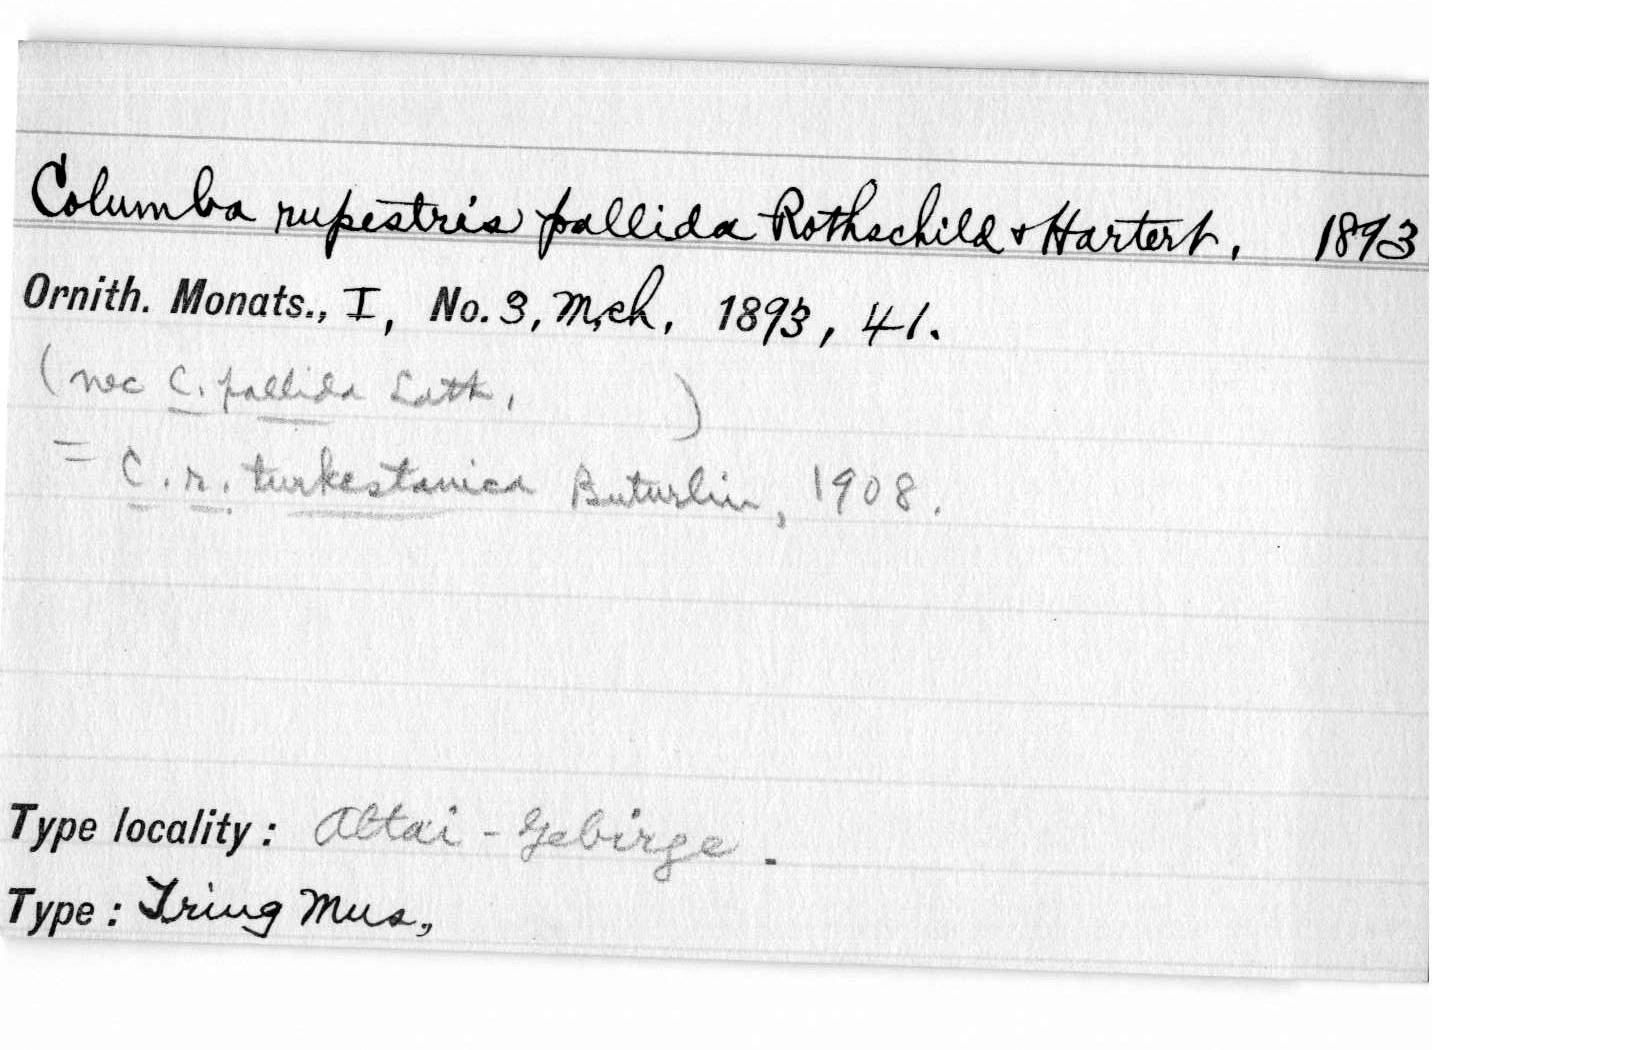 Columba rupestris pallida Rothschild & Hartert, 1893
Ornith. Monats., I, No. 3, Mch, 1893, 41.
(nec C. pallida Lath, )
= C. r. turkestanica Buturlin, 1908.
Type locality: Altai - Gebirge.
Type: Tring Mus.,